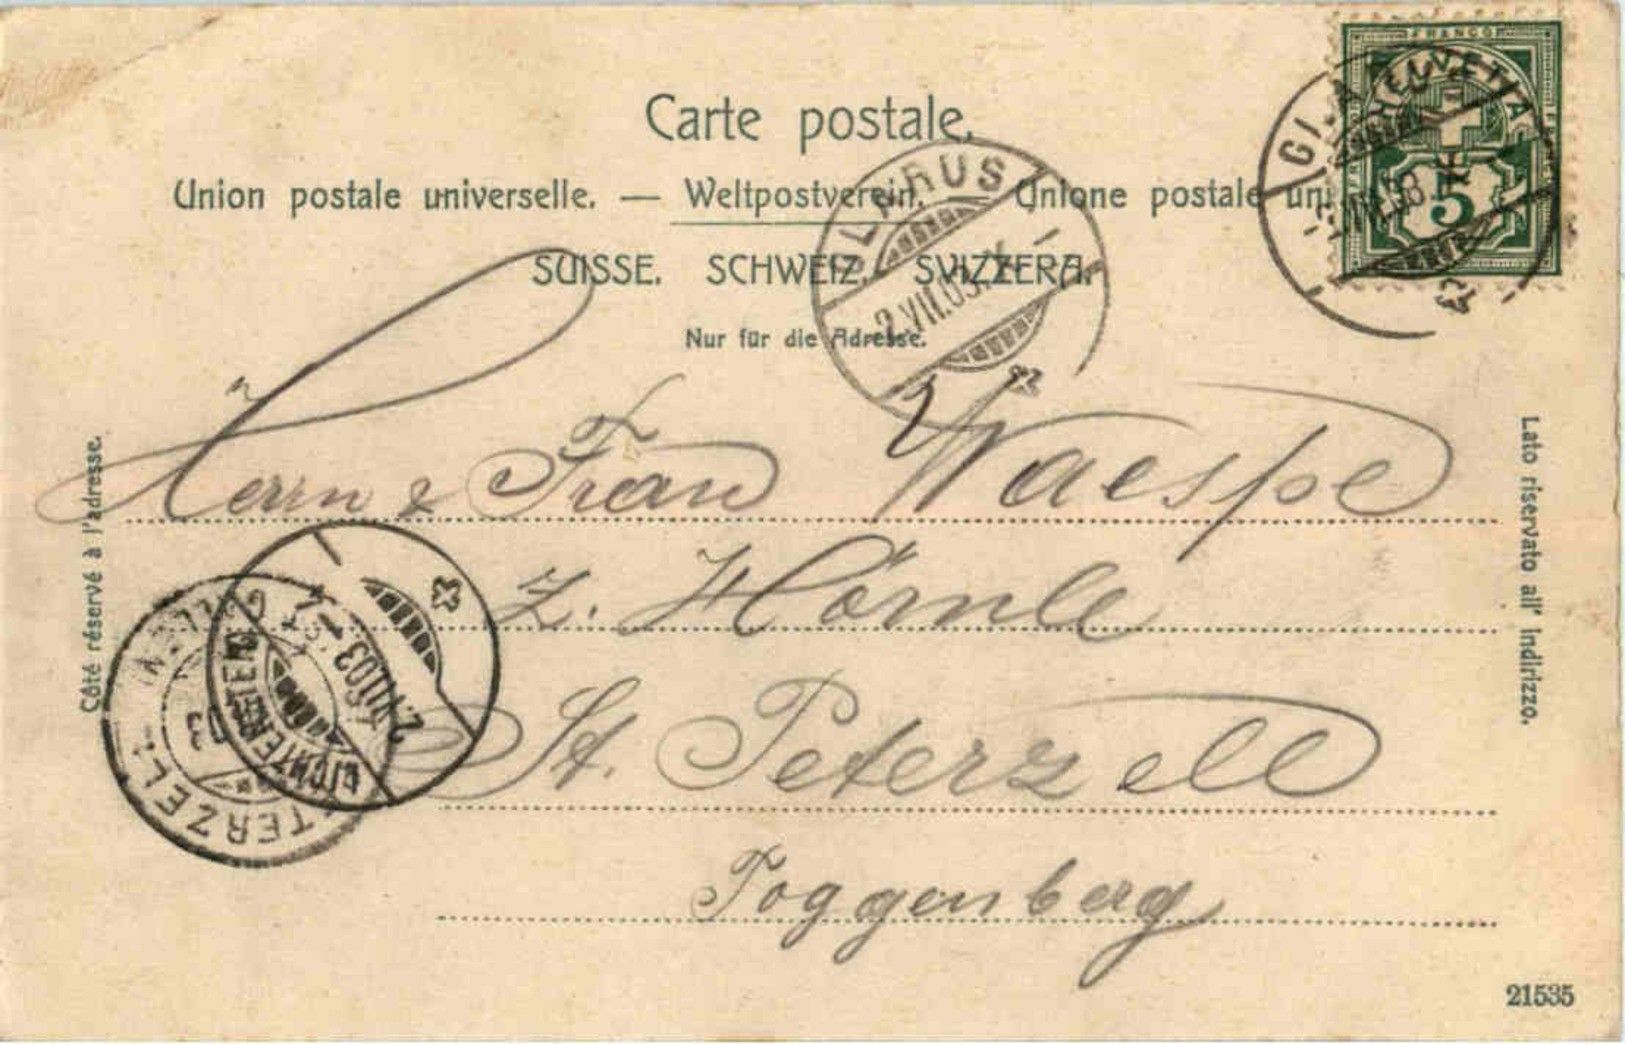 Carte postale.
Union postale universelle. — Weltpostverein. Unione postale uni
SUISSE. SCHWEIZ. SVIZZERA.
Nur für die Adresse.
FRANCO
HELVETIA
5
GLARUS
2.VII.03.
Herrn & Frau Waespe
z. Hörnle
St. Peterzell
Toggenberg
LICHTENSTEIG
2.VII.03
TERZELL
Côté réservé à l'adresse.
Lato riservato all' indirizzo.
21535